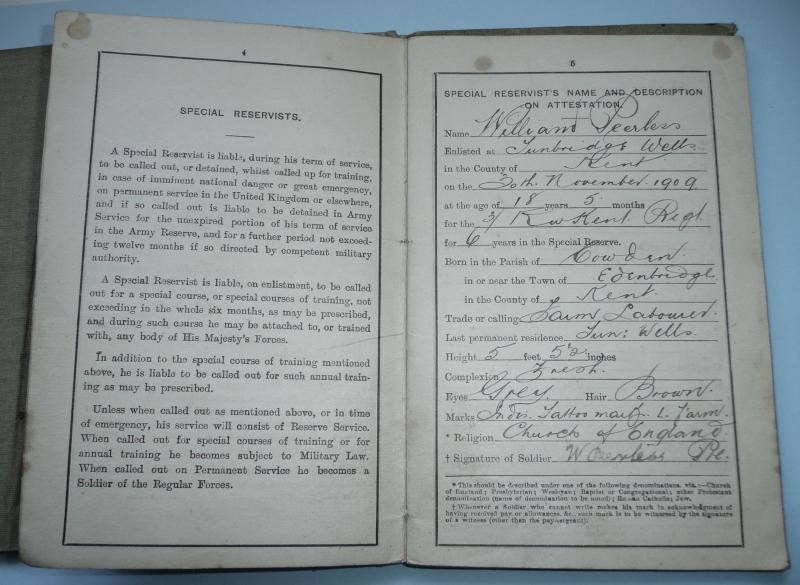 4
SPECIAL RESERVISTS.
A Special Reservist is liable, during his term of service,
to be called out, or detained, whilst called up for training,
in case of imminent national danger or great emergency,
on permanent service in the United Kingdom or elsewhere,
and if so called out is liable to be detained in Army
Service for the unexpired portion of his term of service
in the Army Reserve, and for a further period not exceed-
ing twelve months if so directed by competent military
authority.
A Special Reservist is liable, on enlistment, to be called
out for a special course, or special courses of training, not
exceeding in the whole six months, as may be prescribed,
and during such course he may be attached to, or trained
with, any body of His Majesty's Forces.
In addition to the special course of training mentioned
above, he is liable to be called out for such annual train-
ing as may be prescribed.
Unless when called out as mentioned above, or in time
of emergency, his service will consist of Reserve Service.
When called out for special courses of training or for
annual training he becomes subject to Military Law.
When called out on Permanent Service he becomes a
Soldier of the Regular Forces.
5
SPECIAL RESERVIST'S NAME AND DESCRIPTION
ON ATTESTATION.
Name William Peerless
Enlisted at Tunbridge Wells
in the County of Kent
on the 30th November 1909
at the age of 18 years 5 months
for the 3/ R W Kent Regt
for 6 years in the Special Reserve.
Born in the Parish of Cowden
in or near the Town of Edenbridge
in the County of Kent.
Trade or calling Farm Labourer
Last permanent residence Tun: Wells.
Height 5 feet inches
Complexion Fresh.
Eyes Grey Hair Brown.
Marks Indis. Tattoo mark L. Farm
* Religion Church of England
† Signature of Soldier W Peerless Pte.
* This should be described under one of the following denominations, viz.:—Church
of England; Presbyterian; Wesleyan; Baptist or Congregational; other Protestant
denomination (name of denomination to be noted); Roman Catholic; Jew.
† Whenever a Soldier who cannot write makes his mark in acknowledgment of
having received pay or allowances, &c., such mark is to be witnessed by the signature
of a witness (other than the pay-sergeant).